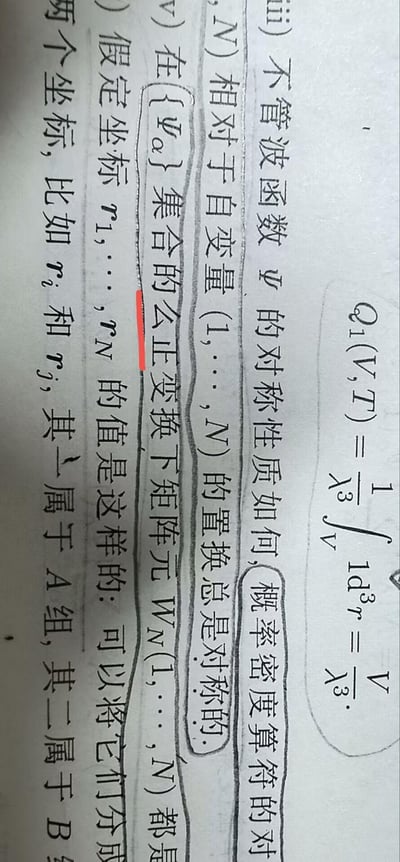 Q₁(V, T) = 1/λ³ ∫_V 1d³r = V/λ³.
iii) 不管波函数 Ψ 的对称性质如何, 概率密度算符的对
, N) 相对于自变量 (1, ⋯, N) 的置换总是对称的.
v) 在 {Ψα} 集合的么正变换下矩阵元 W_N(1, ⋯, N) 都是
) 假定坐标 r₁, ⋯, r_N 的值是这样的: 可以将它们分成
两个坐标, 比如 r_i 和 r_j, 其一属于 A 组, 其二属于 B